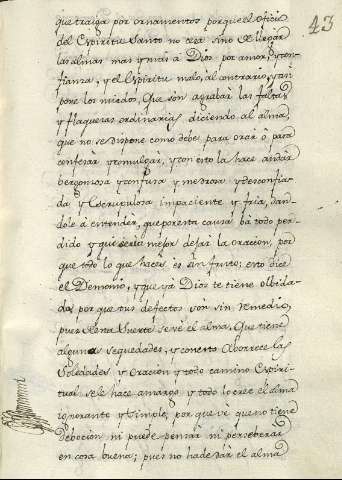 43
que traiga por ornamentos porque el oficio
del Espiritu Santo no sea sino allegar
las almas mas y mas a Dios por amor, y con
fianza, y el Espiritu malo, al contrario, y an
pone los miedos, Que son agrabar las faltas
y flaquesas ordinarias diciendo al alma,
que no se dispone como debe para orar ó para
confesar y comulgar, y con esto la hace andar
bergonsosa y confusa y medrosa y desconfia
da y escrupulosa impaciente y fria, dan
dole á entender, que por esta causa bá todo per
dido y que seria mejor dejar la oracion, por
que todo lo que haces es sin fruto; esto dice
el Demonio, y que yá Dios te tiene olbida
do, por que tus defectos son sin remedio,
pues desta suerte se vé el alma, Que tiene
algunas sequedades, y con esto aborrece las
Soledades y Oracion y todo camino Espiri-
tual se le hace amargo y todo lo cree el alma
ignorante y Simple, por que vé que no tiene
deboción, ni puede pensar ni perseberar
en cosa buena; pues no ha de dar el alma